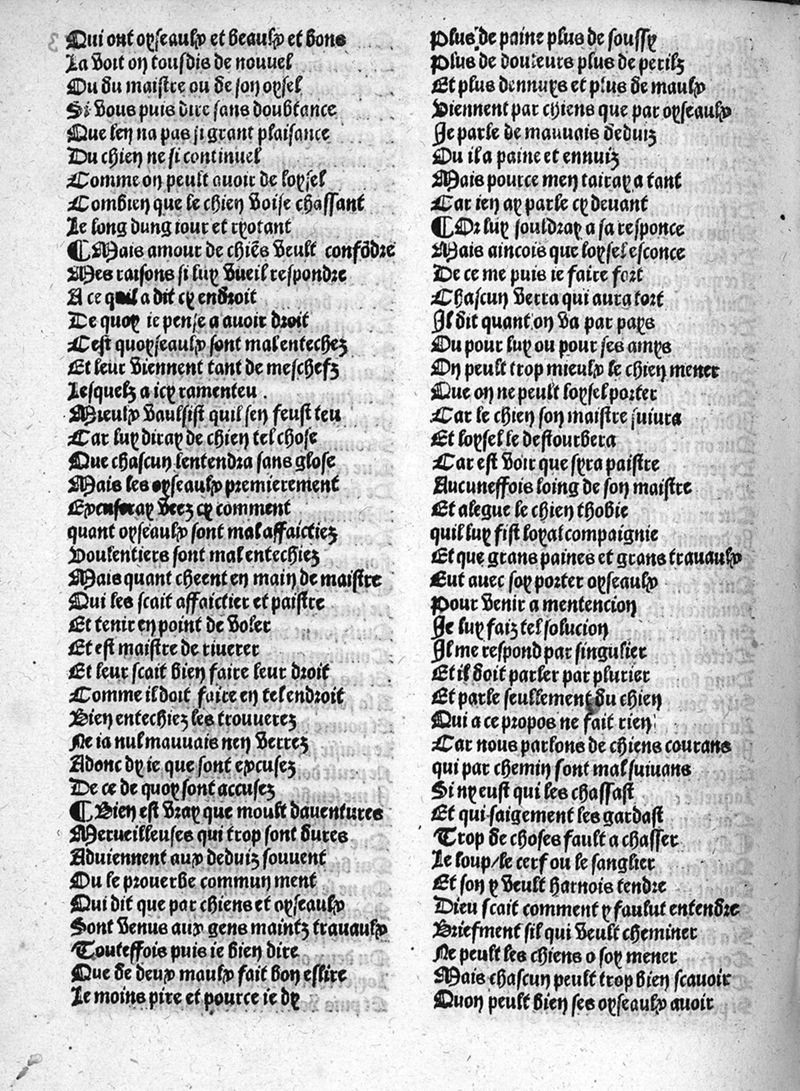 Qui ont oyseaulx et beaulx et bons
La voit on tousdis de nouvel
Ou du maistre ou de son oysel
Si vous puis dire sans doubtance
Que len na pas si grant plaisance
Du chien ne si continuel
Comme on peult avoir de loysel
Combien que le chien voise chassant
Le long dung iour et ryotant
¶Mais amour de chiẽs veult confõdre
Mes raisons si luy vueil respondre
A ce quil a dit cy endroit
De quoy ie pense a avoir droit
Cest quoyseaulx sont mal entechez
Et leur viennent tant de meschefz
Lesquelz a icy ramenteu .
Mieulx vaulsist quil sen feust teu
Car luy diray de chien tel chose
Que chascun lentendra sans glose
Mais les oyseaulx premierement
Excuseray veez cy comment
quant oyseaulx sont mal affaictiez
voulentiers sont mal entechiez
Mais quant cheent en main de maistre
Qui les scait affaictier et paistre
Et tenir en point de voler
Et est maistre de riverer
Et leur scait bien faire leur droit
Comme il doit faire en tel endroit
Bien entechiez les trouverez
Ne ia nul mauvais nen verrez
Adonc dy ie que sont excusez
De ce de quoy sont accusez
¶Bien est vray que moult daventures
Merveilleuses qui trop sont dures
Adviennent aux deduiz souvent
Ou le proverbe commun ment
Qui dit que par chiens et oyseaulx
Sont venus aux gens maintz travaulx
Touteffois puis ie bien dire
Que de deux maulx fait bon eslire
Le moins pire et pource ie dy
Plus de paine plus de soussy
Plus de douleurs plus de perilz
Et plus dennuys et plus de maulx
viennent par chiens que par oyseaulx
Je parle de mauvais deduiz
Ou il a paine et ennuiz
Mais pource men tairay a tant
Car ien ay parle cy devant
¶Or luy souldray a sa responce
Mais aincois que loysel esconce
De ce me puis ie faire fort
Chascun verra qui aura tort
Il dit quant on va par pays
Ou pour luy ou pour ses amys
On peult trop mieulx le chien mener
Que on ne peult loysel porter
Car le chien son maistre suivra
Et loysel le destourbera
Car est voir que syra paistre
Aucuneffois loing de son maistre
Et alegue le chien thobie
quil luy fist loyal compaignie
Et que grans paines et grans travaulx
Eut avec soy porter oyseaulx
Pour venir a mentencion
Je luy faiz tel solucion
Il me respond par singulier
Et il doit parler par plurier
Et parle seullement du chien
Qui a ce propos ne fait rien
Car nous parlons de chiens courans
qui par chemin sont mal suivans
Si ny eust qui les chassast
Et qui saigement les gardast
Trop de choses fault a chasser
Le loup/le cerf ou le sanglier
Et son y veult harnois tendre
Dieu scait comment y faulut entendre
Briefment sil qui veult cheminer
Ne peult les chiens o soy mener
Mais chascun peult trop bien scavoir
Quon peult bien ses oyseaulx avoir